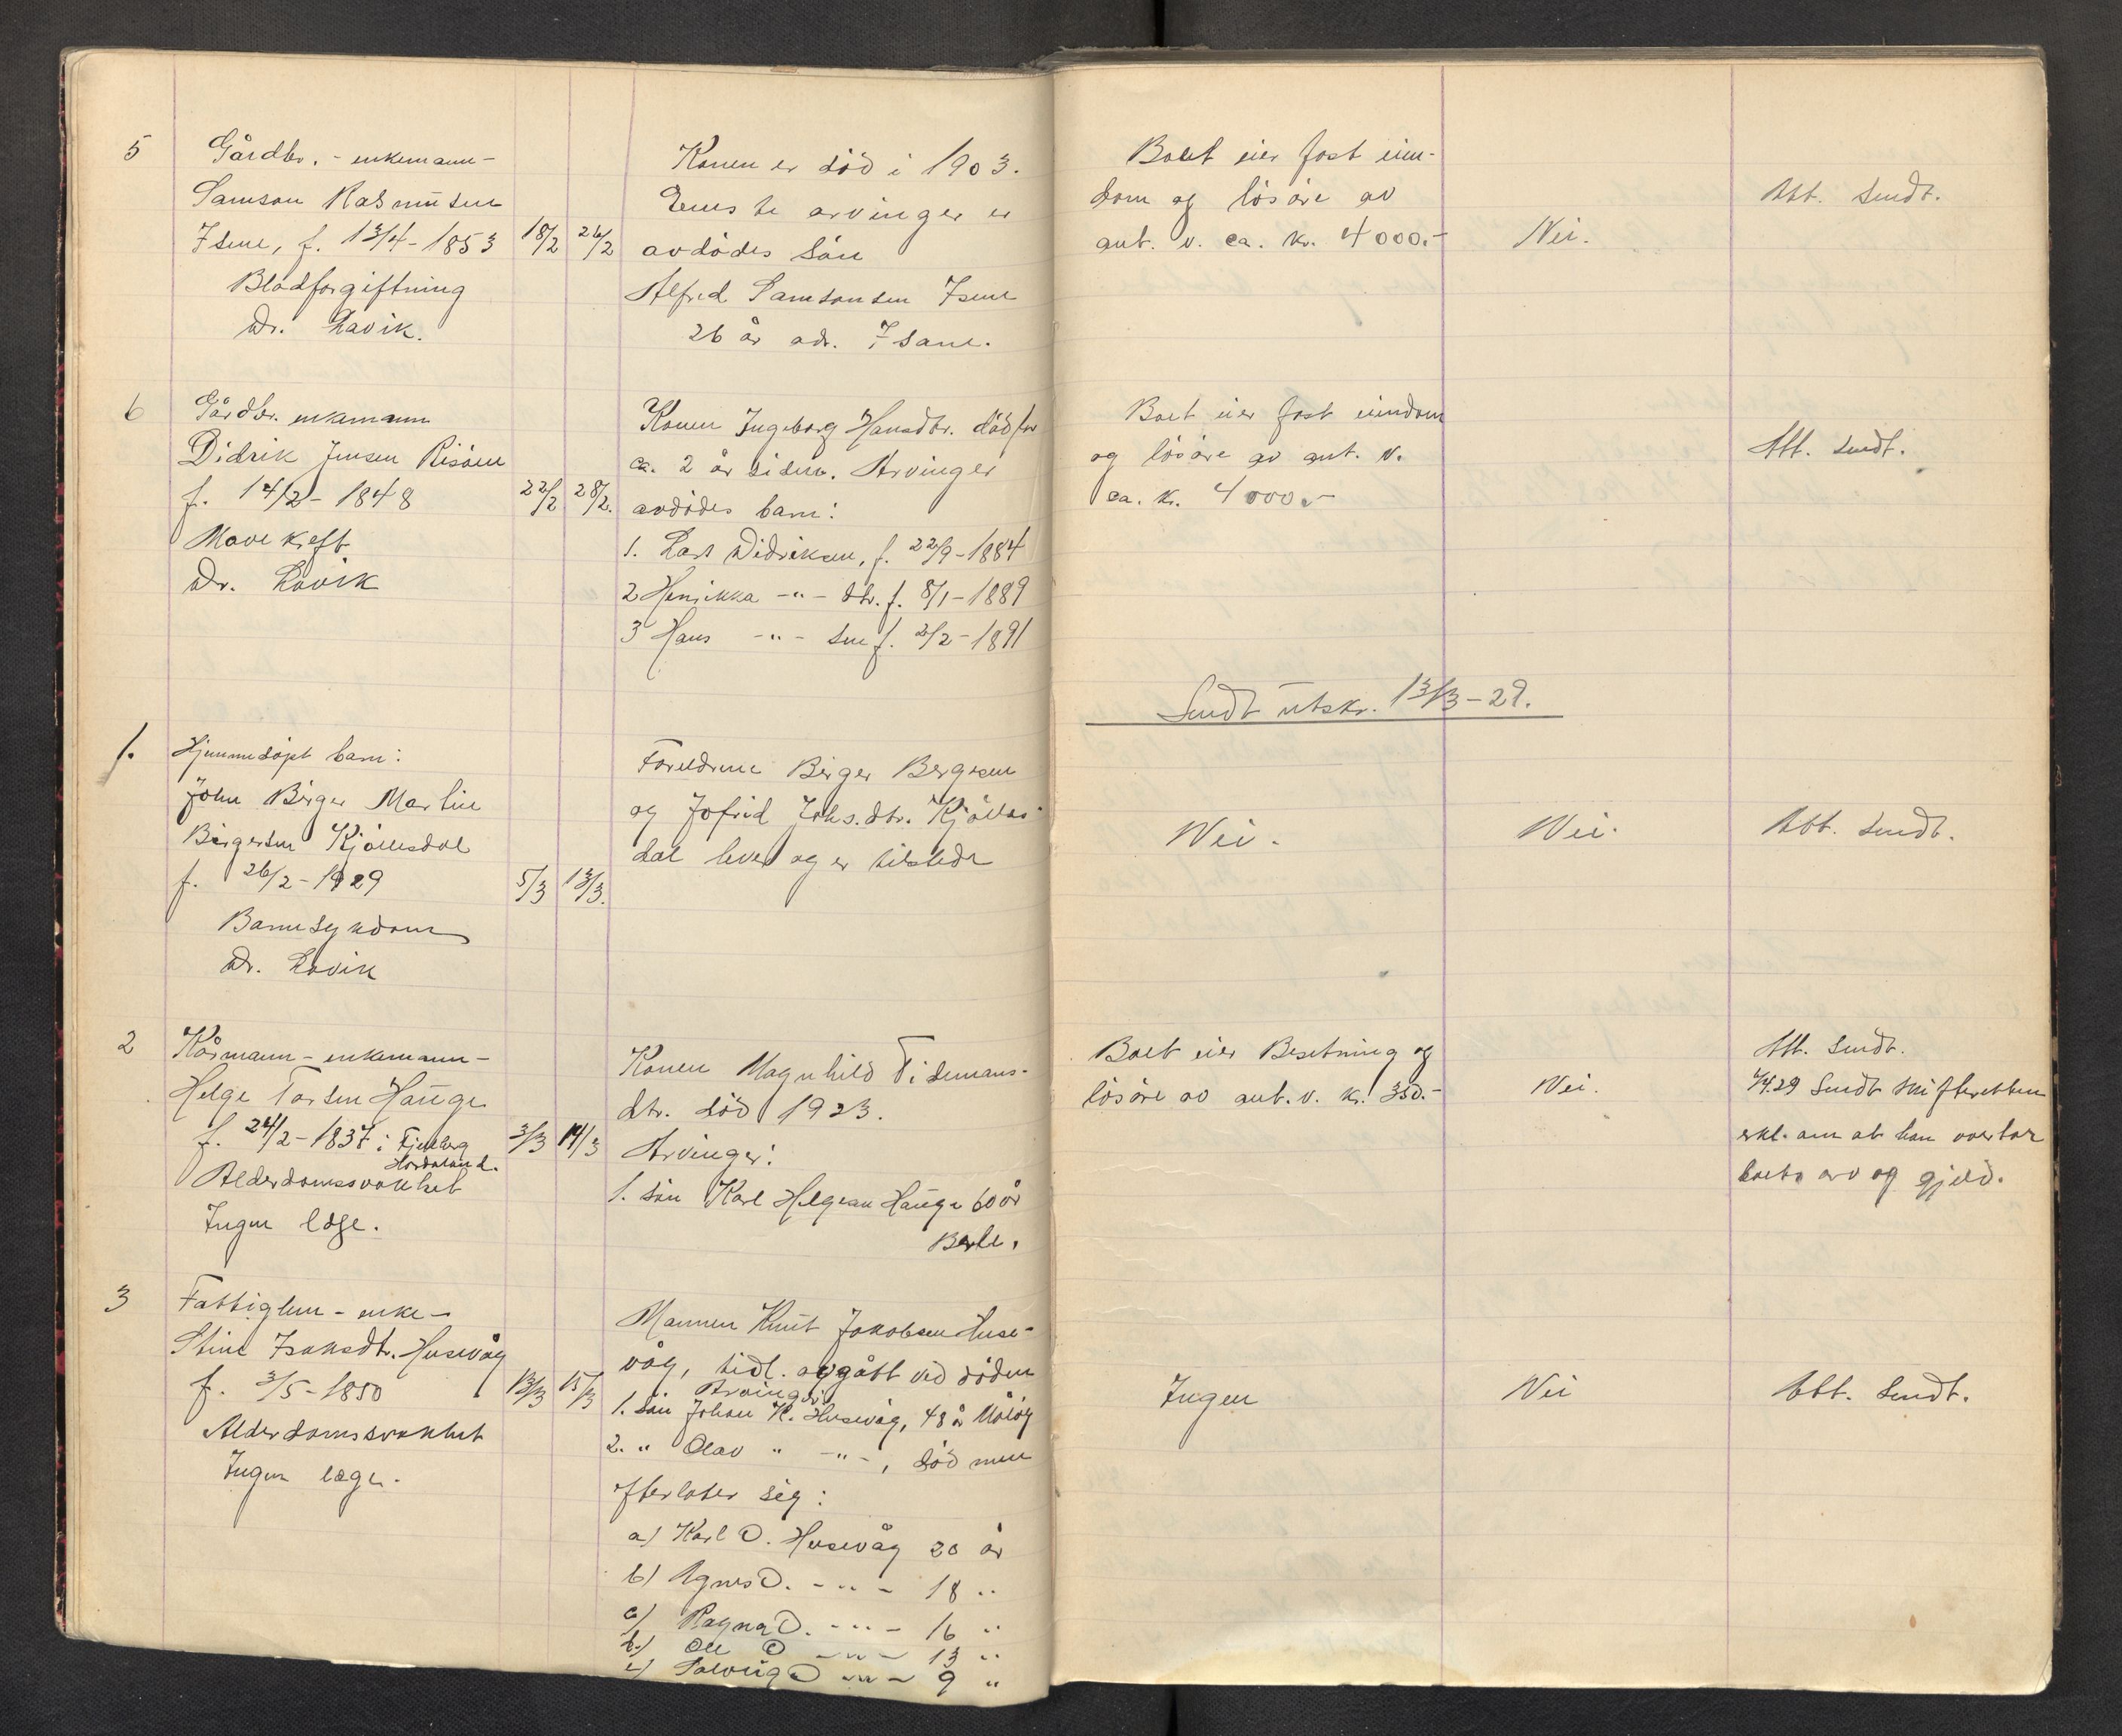 5
Gårdbr. - enkemann -
Samson Rasmusen
Isene, f. 13/4 - 1853
18/2
26/2
Blodforgiftning
Dr. Lavik.
Konen er död i 1903.
Eneste arvinger er
avdödes sön
Alfred Samsonsen Isene
26 år adr. Isane.
Boet eier fast eien-
dom og lösöre av
ant. v. ca. kr. 4000.-
Nei.
Att. sendt.
6
Gårdbr. enkemann
Didrik Jensen Risöen
f. 14/2 - 1848
22/2
28/2.
Mavekreft
Dr. Lavik
Konen Ingeborg Hansdtr. död for
ca. 2 år siden. Arvinger
avdödes barn:
1. Lars Didriksen, f. 22/9 - 1884
2 Henrikka -"- dtr. f. 8/1 - 1889
3 Hans -"- sen f. 2/2 - 1891
Boet eier fast eiendom
og lösöre av ant. v.
ca. k. 4000.-
Att. sendt.
Sendt utskr. 13/3 - 29.
1.
Hjemmedöpt barn:
John Birger Martin
Birgersen Kjöllesdal
f. 26/2 - 1929
5/3
13/3.
Barnesykdom
Dr. Lavik
Foreldrene Birger Bergesen
og Jofrid Johs.dtr. Kjölles-
dal lever og er tilstede
Nei.
Nei.
Att. sendt.
2
Kårmann - enkemann -
Helge Torsen Hauge
f. 24/2 - 1837 i Fjelberg
Hordaland.
3/3
14/3
Alderdomssvakhet
Ingen læge.
Konen Magnhild Tidemans-
dtr. död 1923.
Arvinger:
1. sön Karl Helgesen Hauge 60 år
Berle.
Boet eier Besetning og
lösöre av ant. v. k. 350.-
Nei.
Att. sendt.
4/4.29 Sendt skifteretten
erkl. om at han overtar
boets arv og gjeld.
3
Fattiglem - enke -
Stine Isaksdtr. Husevåg
f. 3/5 - 1850
13/3
15/3
Alderdomssvakhet
Ingen læge.
Mannen Knut Jakobsen Huse-
våg, tidl. avgått ved döden
Arvinger
1. sön Johan K. Husevåg, 48 år Måløy
2. " Olav " -"-, död men
efterlater sig:
a) Karl O. Husevåg 20 år
b) Agnes O. -"- 18 "
c) Ragna O. -"- 16 "
d.) Ole O -"- 13 "
e) Solveig O -"- 9 "
Ingen
Nei
Att. sendt.